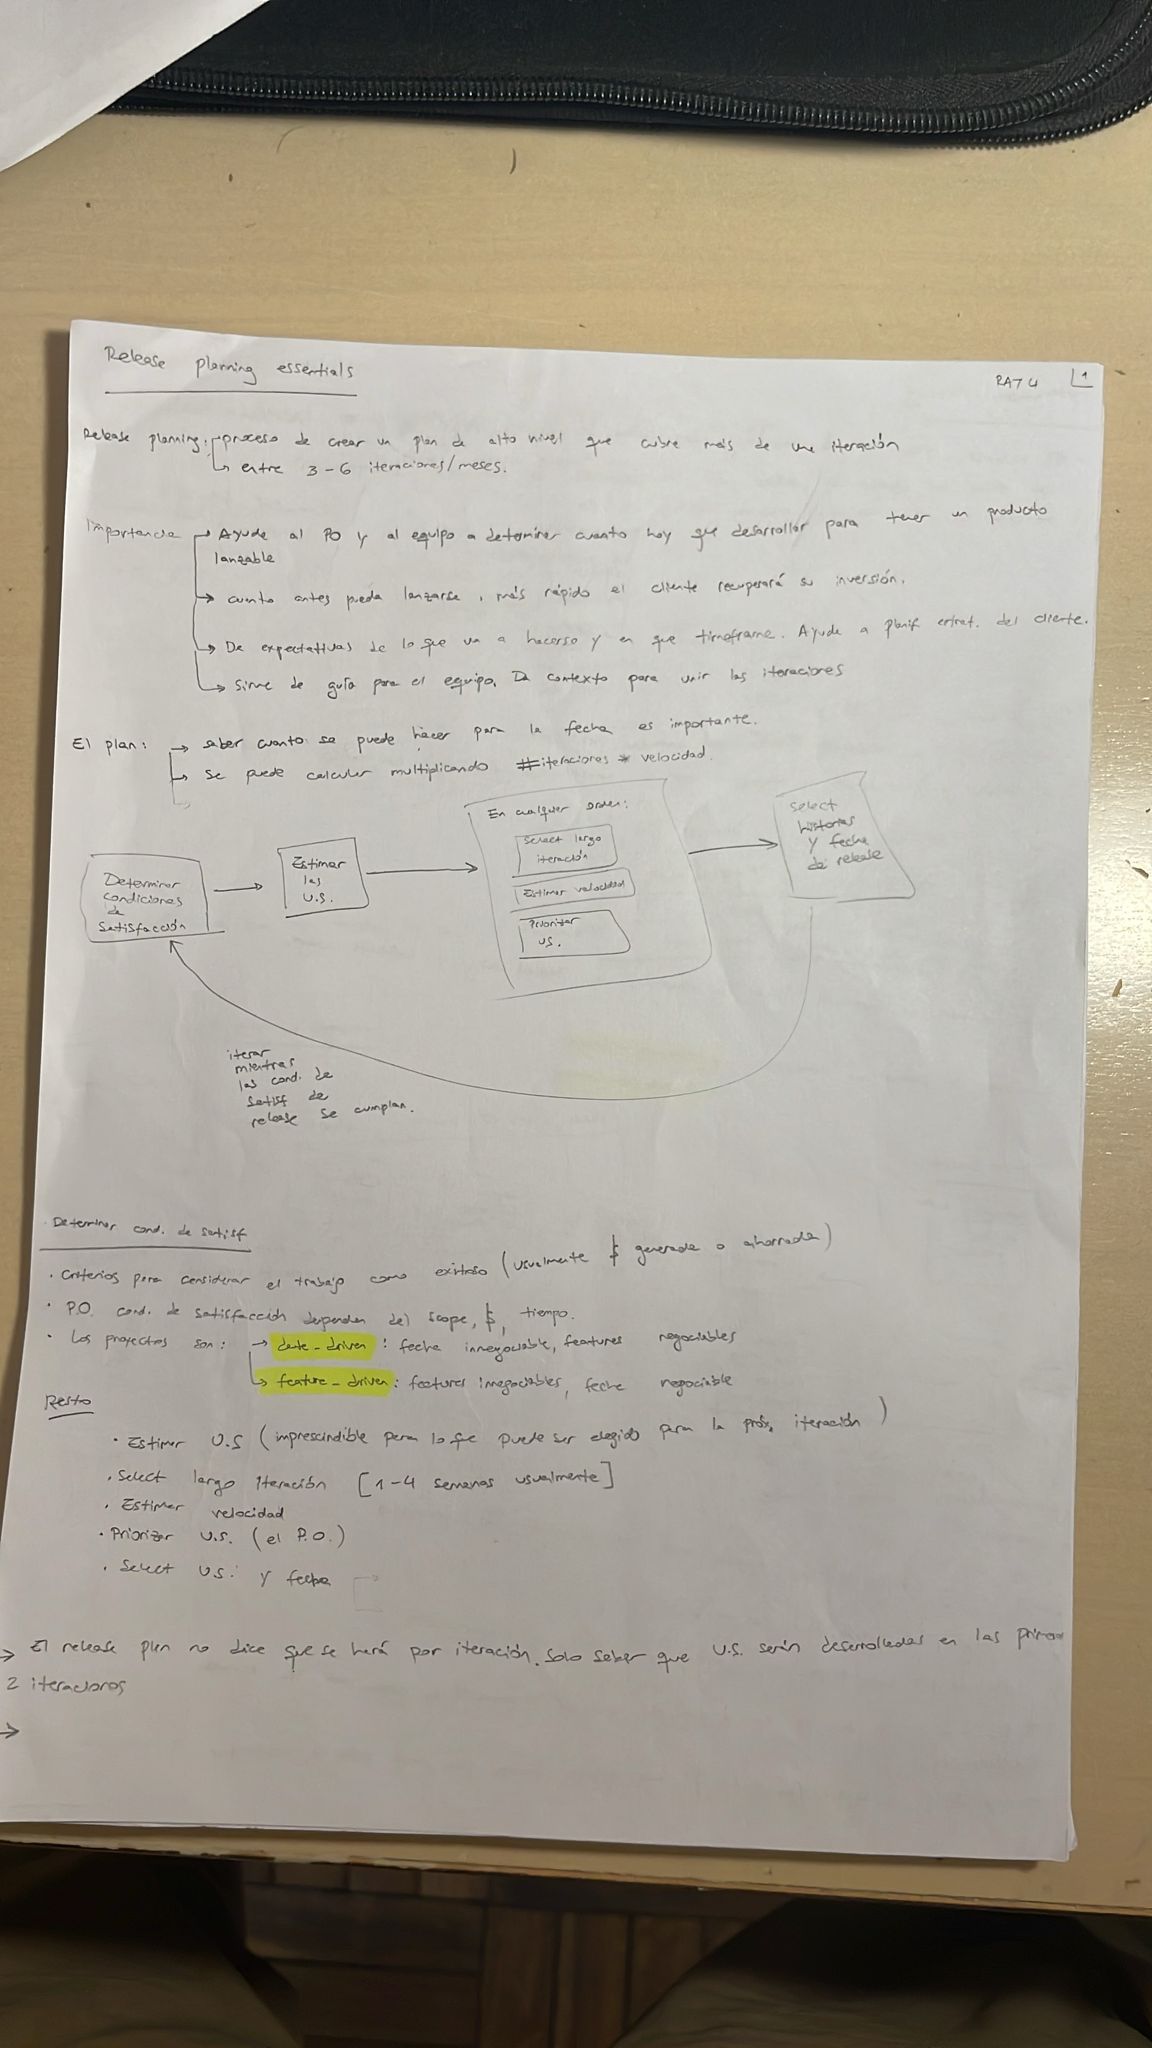 Release planning essentials
RAT4 1
Release planning: → proceso de crear un plan de alto nivel que cubre más de una iteración
→ entre 3-6 iteraciones/meses.
Importancia → Ayuda al PO y al equipo a determinar cuanto hay que desarrollar para tener un producto
lanzable
→ cuanto antes pueda lanzarse, más rápido el cliente recuperará su inversión.
→ Da expectativas de lo que va a hacerse y en que timeframe. Ayuda a planif estrat. del cliente.
→ Sirve de guía para el equipo. Da contexto para unir las iteraciones
El plan: → saber cuanto se puede hacer para la fecha es importante.
→ se puede calcular multiplicando #iteraciones * velocidad.
Determinar
condiciones
de
satisfacción
Estimar
las
U.S.
En cualquier orden:
Select largo
iteración
Estimar velocidad
Priorizar
US.
Select
historias
y fecha
de release
iterar
mientras
las cond. de
satisf de
release se cumplan.
Determinar cond. de satisf
· Criterios para considerar el trabajo como exitoso (usualmente $ generada o ahorrada)
· P.O. cond. de satisfacción dependen del scope, $, tiempo.
· Los proyectos son: → date-driven: fecha innegociable, features negociables
→ feature-driven: features innegociables, fecha negociable
Resto
· Estimar U.S (imprescindible para lo que puede ser elegido para la próx. iteración)
· Select largo iteración [1-4 semanas usualmente]
· Estimar velocidad
· Priorizar U.S. (el P.O.)
· Select U.S. y fecha
→ El release plan no dice que se hará por iteración. Solo saber que U.S. serán desarrolladas en las primeras
2 iteraciones
→